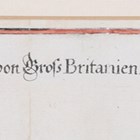 von Groſs Britanien